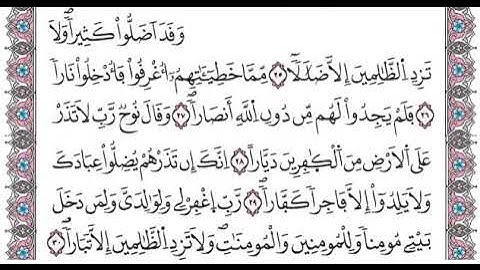 وَقَدَ اَضَلُّواْ كَثِيراً وَلَا
تَزِدِ اِلظَّٰلِمِينَ إِلَّا ضَلَٰلاً ٢٥ مِّمَّا خَطِيٓـَٰٔتِهِمُۥٓ أُغْرِقُواْ فَأُدْخِلُواْ نَاراً
٢٦ فَلَمْ يَجِدُواْ لَهُم مِّن دُونِ اِللَّهِ أَنصَاراً ٢٧ وَقَالَ نُوحٌ رَّبِّ لَا تَذَرْ
عَلَى اَلَارْضِ مِنَ اَلْكٰ۪فِرِينَ دَيَّاراً ٢٨ اِنَّكَ إِن تَذَرْهُمْ يُضِلُّواْ عِبَادَكَ
وَلَا يَلِدُوٓاْ إِلَّا فَاجِراً كَفَّاراً ٢٩ رَّبِّ اِغْفِرْ لِي وَلِوَٰلِدَيَّ وَلِمَن دَخَلَ
بَيْتِي مُومِناً وَلِلْمُومِنِينَ وَالْمُومِنَٰتِ وَلَا تَزِدِ اِلظَّٰلِمِينَ إِلَّا تَبَاراً ٣٠